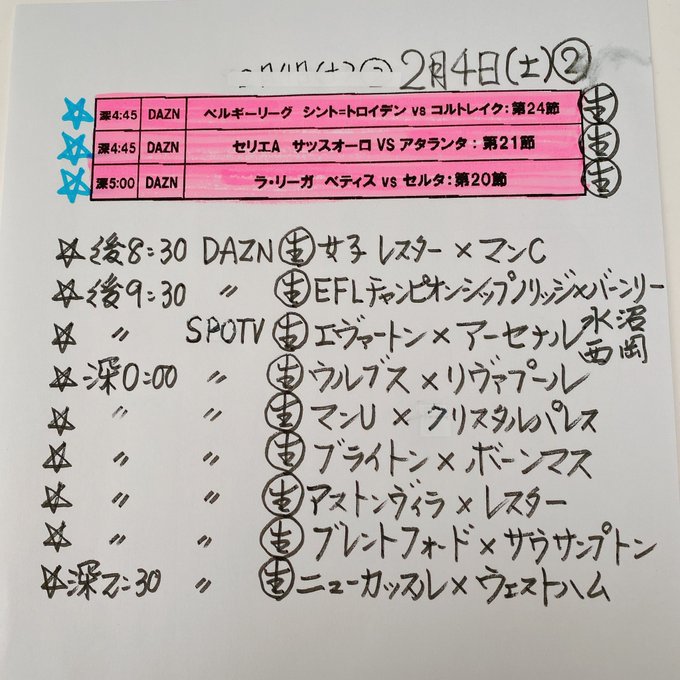 2月4日(土)②
深4:45 DAZN ベルギーリーグ シント=トロイデン vs コルトレイク:第24節 生
深4:45 DAZN セリエA サッスオーロ VS アタランタ:第21節 生
深5:00 DAZN ラ・リーガ ベティス vs セルタ:第20節 生
☆後8:30 DAZN 生 女子 レスター×マンC
☆後9:30 〃 生 EFLチャンピオンシップノリッジ×バーンリー
☆ 〃 SPOTV 生 エヴァートン×アーセナル 水沼
西岡
☆深0:00 〃 生 ウルブス×リヴァプール
☆ 〃 〃 生 マンU×クリスタルパレス
☆ 〃 〃 生 ブライトン×ボーンマス
☆ 〃 〃 生 アストンヴィラ×レスター
☆ 〃 〃 生 ブレントフォード×サウサンプトン
☆深2:30 〃 生 ニューカッスル×ウェストハム